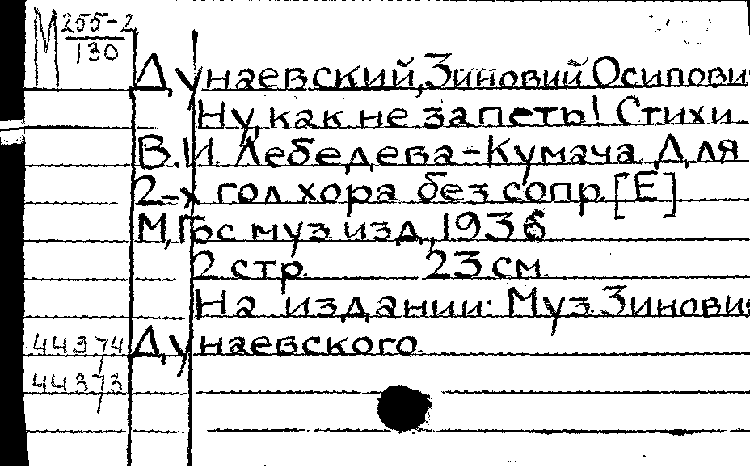 М 255-2
130
Дунаевский, Зиновий Осипови
Ну, как не запеть! Стихи
В.И. Лебедева-Кумача. Для
2-х гол. хора без сопр. [Е]
М., Гос. муз. изд., 1936
2 стр. 23 см.
На издании: Муз. Зинови
44374 Дунаевского.
44373